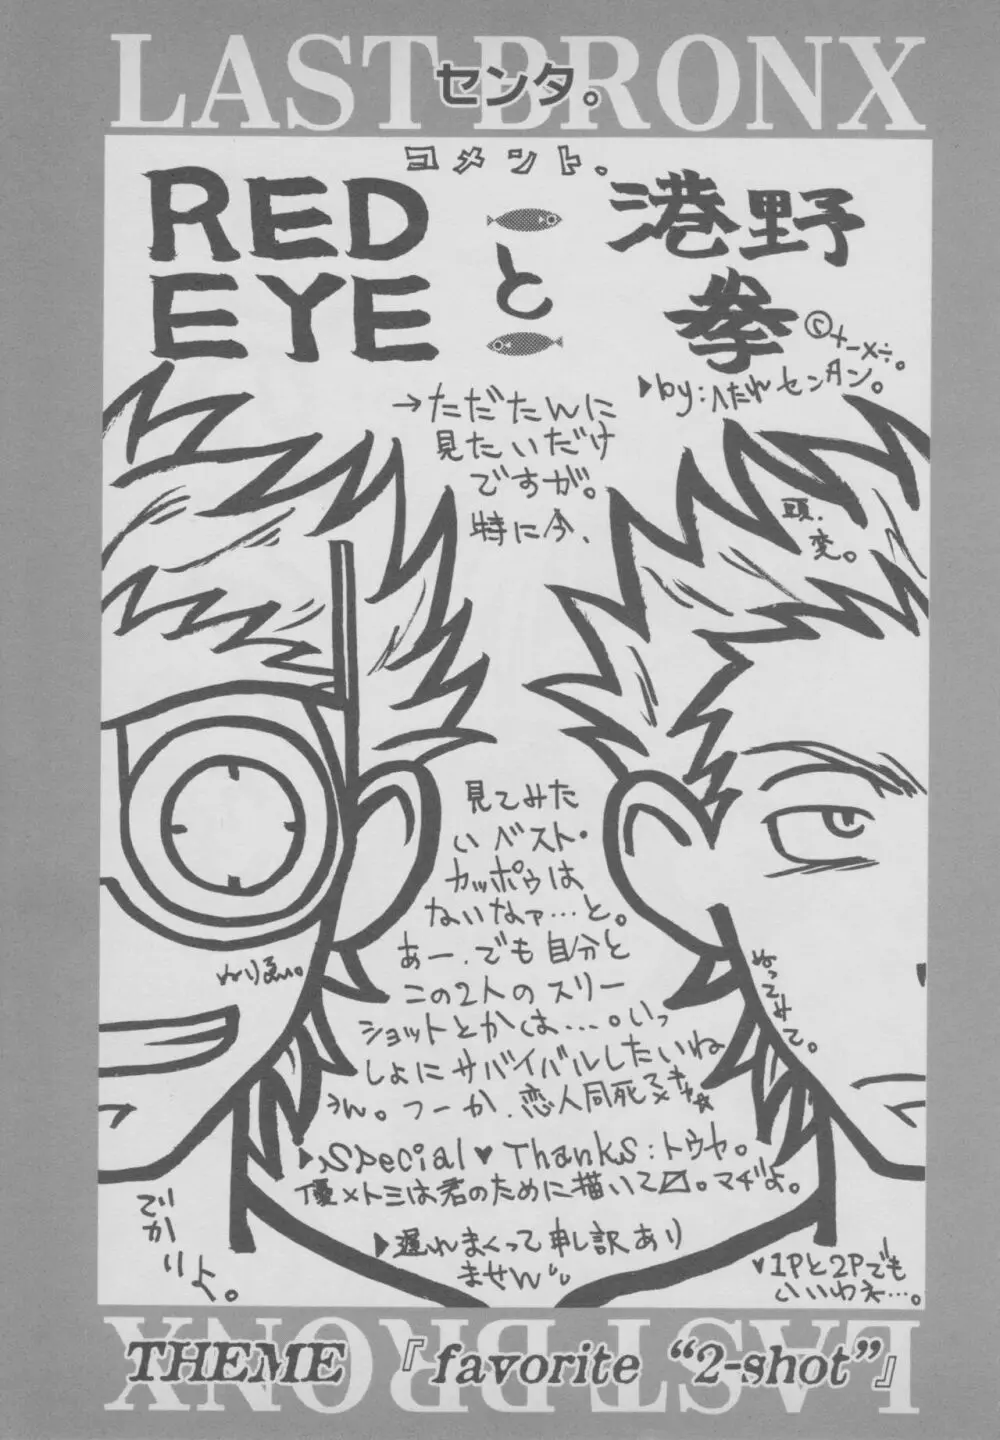 LAST BRONX
センタ。
コメント.
RED
EYE
と
港野
拳
+-×÷。
▶by:へたれセンタン。
→ただたんに
見たいだけ
ですが。
特に今、
頭.
変。
見てみた
いベスト・
カッポゥは
ないなァ…と。
あー.でも自分と
この2人のスリー
ショットとかは…。いっ
しょにサバイバルしたいね
うん。つーか.恋人同死
ぬりゑ。
ぬってみて。
▶Special♥Thanks:トウヤ。
優×トミは君のために描いて〼。マヂよ。
▶遅れまくって申し訳あり
ません
でかりよ。
♥1Pと2Pでも
いいわネ…。
LAST BRONX
THEME『favorite “2-shot”』